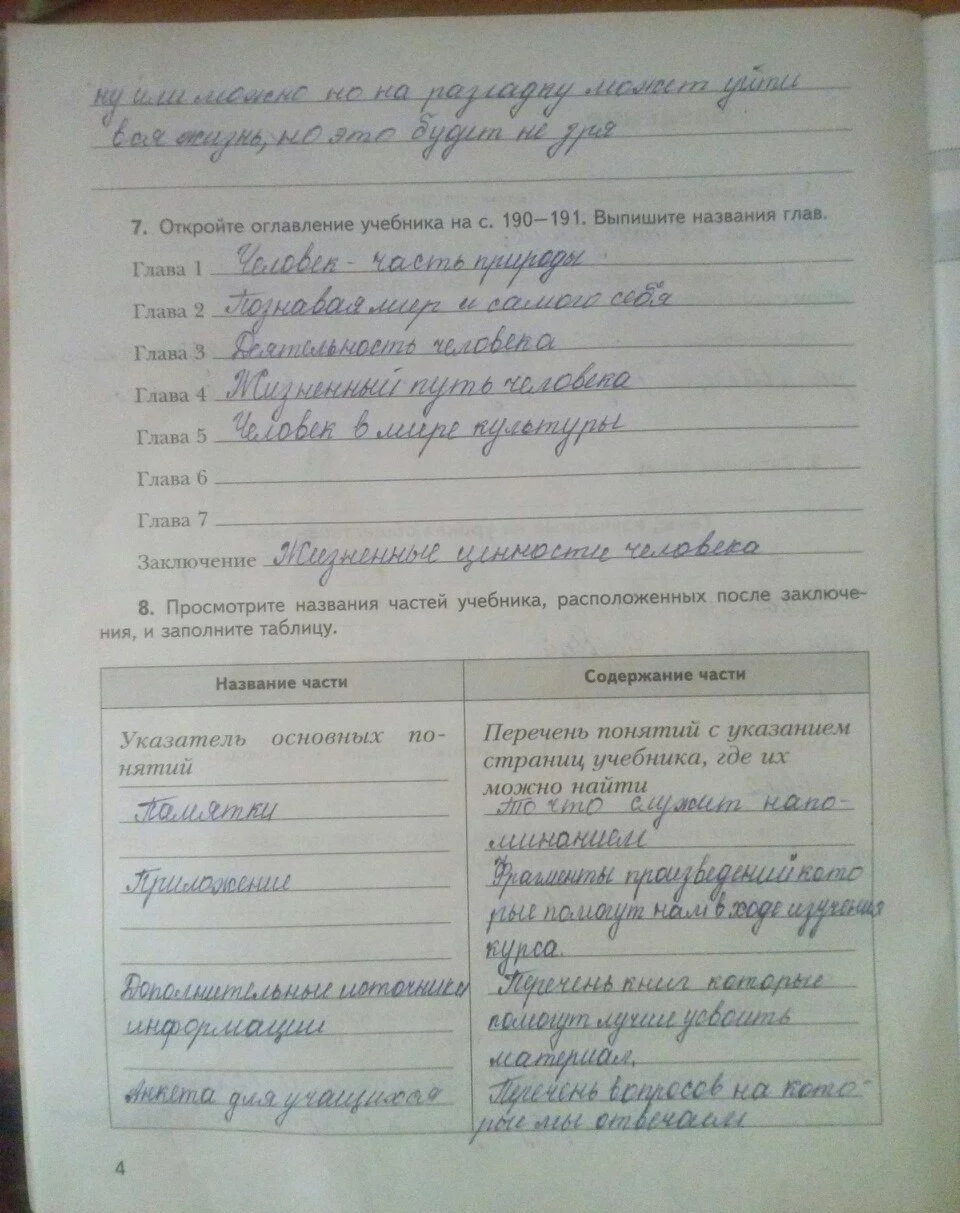 ну или можно но на разгадку может уйти
вся жизнь, но это будет не зря
7. Откройте оглавление учебника на с. 190—191. Выпишите названия глав.
Глава 1 Человек - часть природы
Глава 2 Познавая мир и самого себя
Глава 3 Деятельность человека
Глава 4 Жизненный путь человека
Глава 5 Человек в мире культуры
Глава 6
Глава 7
Заключение Жизненные ценности человека
8. Просмотрите названия частей учебника, расположенных после заключе-
ния, и заполните таблицу.
Название части
Содержание части
Указатель основных по-
нятий
Перечень понятий с указанием
страниц учебника, где их
можно найти
Памятки
То что служит напо-
минанием
Приложение
Фрагменты произведений кото
рые помогут нам в ходе изучения
курса.
Дополнительные источники
информации
Перечень книг которые
помогут лучше усвоить
материал.
Анкета для учащихся
Перечень вопросов на кото-
рые мы отвечаем
4